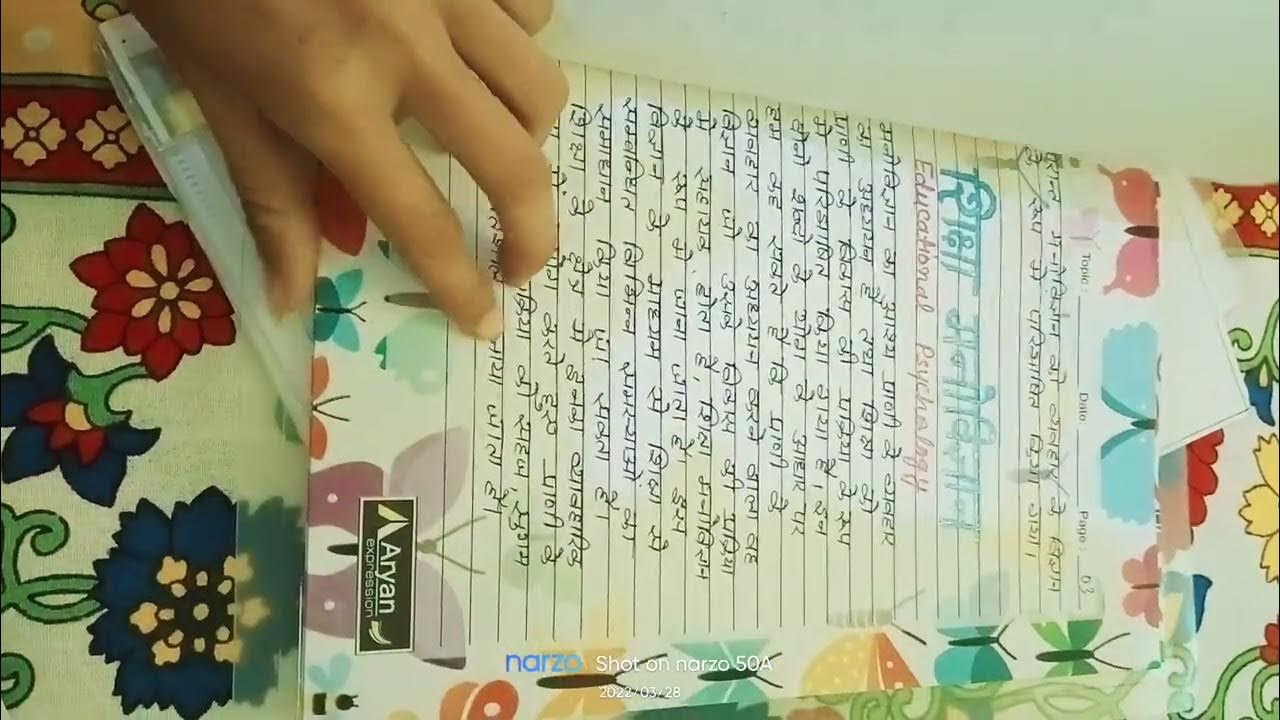 Topic :
Date
Page : 03
मनोविज्ञान को व्यवहार के विज्ञान
के रूप में परिभाषित किया गया।
शिक्षा मनोविज्ञान
Educational Psychology
मनोविज्ञान का आशय प्राणी के व्यवहार
का अध्ययन है तथा शिक्षा को
प्राणी के विकास की प्रक्रिया के रूप
में परिभाषित किया गया है। इन
दोनों शब्दों के योग के आधार पर
हम कह सकते हैं कि प्राणी के
व्यवहार का अध्ययन करने वाला वह
विज्ञान जो उसके विकास की प्रक्रिया
में सहायक होता है, शिक्षा मनोविज्ञान
के रूप में जाना जाता है। इस
विज्ञान के माध्यम से शिक्षा से
सम्बन्धित विभिन्न समस्याओं का
समाधान किया जा सकता है।
शिक्षा के क्षेत्र में इनका व्यावहारिक
करते हुए प्राणी के
को सहज, सुगम
जाता है।
Aryan
expression
narzo Shot on narzo 50A
2022/03/28